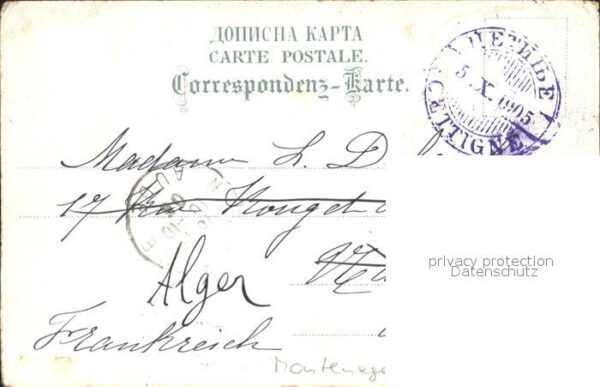 ДОПИСНА КАРТА
CARTE POSTALE.
Correspondenz-Karte.
ЦЕТИЊЕ
5. X. 1905
CETTIGNE
Madame L. D
17 Rue Rouget
Alger
Frankreich
privacy protection
Datenschutz